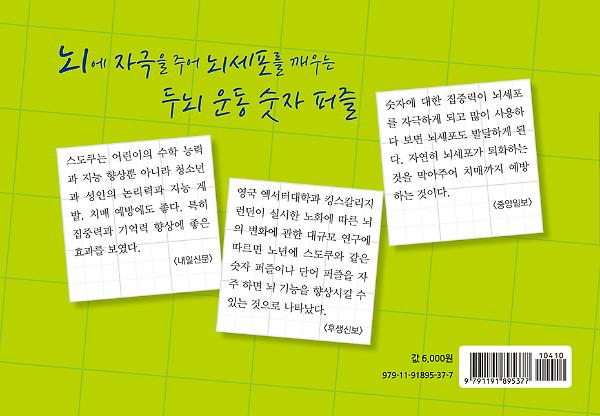 뇌에 자극을 주어 뇌세포를 깨우는
두뇌 운동 숫자 퍼즐
스도쿠는 어린이의 수학 능력
과 지능 향상뿐 아니라 청소년
과 성인의 논리력과 지능 계
발, 치매 예방에도 좋다. 특히
집중력과 기억력 향상에 좋은
효과를 보였다.
〈내일신문〉
영국 엑서터대학과 킹스칼리지
런던이 실시한 노화에 따른 뇌
의 변화에 관한 대규모 연구에
따르면 노년에 스도쿠와 같은
숫자 퍼즐이나 단어 퍼즐을 자
주 하면 뇌 기능을 향상시킬 수
있는 것으로 나타났다.
〈후생신보〉
숫자에 대한 집중력이 뇌세포
를 자극하게 되고 많이 사용하
다 보면 뇌세포도 발달하게 된
다. 자연히 뇌세포가 퇴화하는
것을 막아주어 치매까지 예방
하는 것이다.
〈중앙일보〉
값 6,000원
979-11-91895-37-7
10410
9 791191 895377